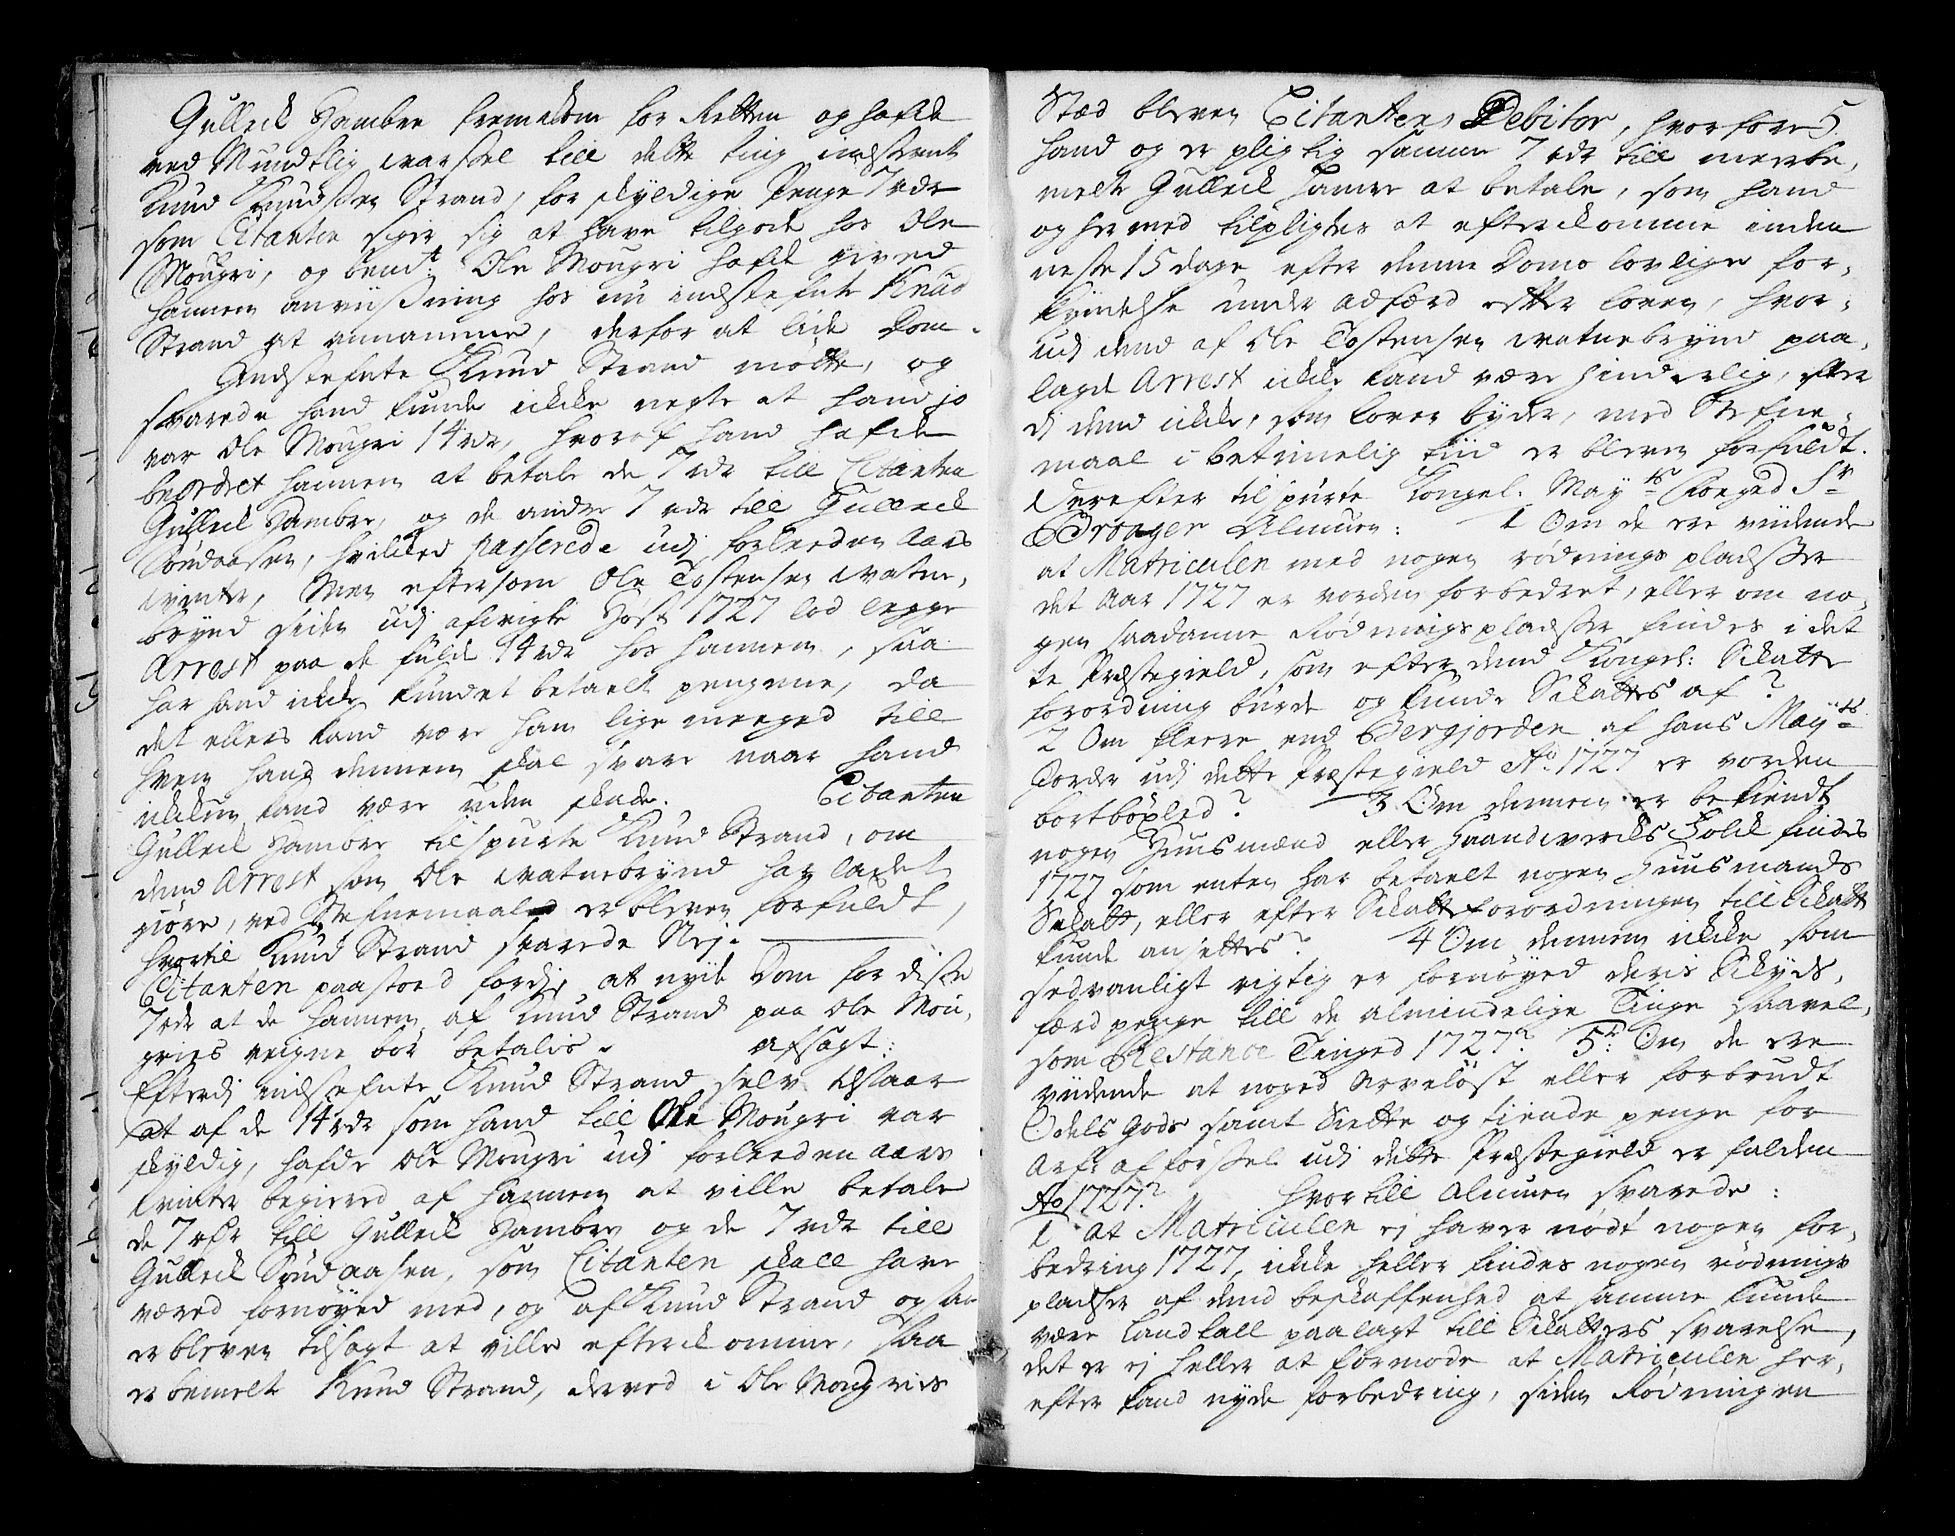 Gulleik Hambre fremkom for Retten og hafde
ved Mundtlig varsel till dette ting indstevnt
Knud Knudssen Strand, for skyldige Penge 7 rdr
som Citanten siger sig at have tilgode hos Ole
Mougri, og bemt. Ole Mougri hafde gived
hannem anviissning hos nu indstefnte Knud
Strand at annamme, derfor at lide Dom.
Indstefnte Knud Strand mötte, og
svarede hand kunde ikke negte at hand jo
var Ole Mougri 14 rdr, hvoraf hand hafde
beordret hannem at betale de 7 rdr till Citanten
Gulleik Hambre, og de andre 7 rdr till Gulleik
Söndaasen, hvilked passerede udj forleeden aars
vinter, Men eftersom Ole Tostensen Vatne-
brynd siden udj afvigte Höst 1727 lod legge
Arrest paa de fulde 14 rdr hos hannem, saa
har hand ikke kundet betaelt pengene, da
det ellers kand være ham lige meeged till
hvem hand dennem skal svare naar hand
ikkun kand være uden skade. Citanten
Gulleik Hambre tilspurte Knud Strand, om
dend Arrest som Ole Vatnebrynd har ladet
giöre, ved Stefnemaal er bleven forfuldt,
hvortil Knud Strand svarede Nej.
Citanten paastoed fordj, at nyde Dom for disse
7 rdr at de hannem af Knud Strand paa Ole Mou-
gries veigne bör betales. Afsagt:
Efterdj indstefnte Knud Strand selv tilstaar
at af de 14 rdr som hand till Ole Mougri var
skyldig, hafde Ole Mougri udj forleeden aars
vinter begiered af hannem at ville betale
de 7 rdr till Gulleik Hambre og de 7 rdr till
Gulleik Söndaasen, som Citanten skall have
væred fornöyed med, og af Knud Strand ogsaa
er bleven tilsagt at ville efterkomme, saa
er bemelte Knud Strand, derved i Ole Mougries
Stæd bleven Citantens Debitor, hvorfore 5.
hand og er pligtig samme 7 rdr till meerbe-
melte Gulleik Hamre at betale, som hand
og hermed tilpligtes at efterkomme inden
neste 15 dage efter denne Doms lovlige for-
kyndelse under adfærd efter loven, hvor-
udj dend af Ole Tostensen Vatnebrynd paa-
lagde Arrest ikke kand være hinderlig, efter
dj dend ikke, som loven byder, med Stefne-
maal i betimelig tiid er bleven forfuldt.
Derefter tilspurte Kongel. Mayts Foeged Sr
Brøager Almuen: 1 Om de ere viidende
at Matriculen med nogen rødnings pladsser
det Aar 1727 er vorden forbedret, eller om no-
gen saadanne Rødningspladsser findes i det
te Præstegield, som efter dend Kongel: Skatte
forordning burde og kunde Skattes af?
2 Om fleere end Bergjorden af hans Mayts
Jorder udj dette Præstegield Ao 1727 er vorden
bortböxled? 3 Om dennem er bekiendt
nogen Huusmænd eller Haandverks Folk findes
1727 som enten har betaelt nogen Huusmands
Skatt, eller efter Skatteforordningen till Skatt
kunde ansettes? 4 Om dennem ikke som
sedvanligt rigtig er fornöyed deris Skyds-
færd penge till de almindelige Tinge saavel-
som Restance Tinged 1727? 5t. Om de ere
viidende at noged Arveløst eller forbrudt
Odels Gods samt Siette og tiende penge for
Arfs afförsel udj dette Præstegield er falden
Ao 1727? Hvortill Almuen svarede:
1 at Matriculen ej haver nödt nogen for-
bedring 1727, ikke heller findes nogen rødnings
pladser af dend beskaffenhed at samme kunde
være landfall paalagt till Skatters svarelse,
det er ej heller at formode at Matriculen her-
efter kand nyde forbedring, siden Rødningen